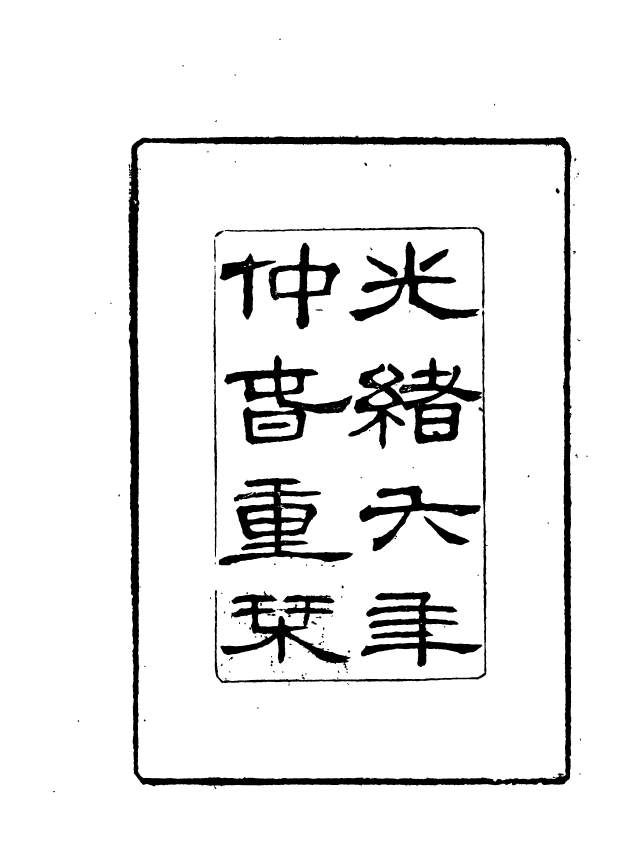 光緒六年
仲旾重栞